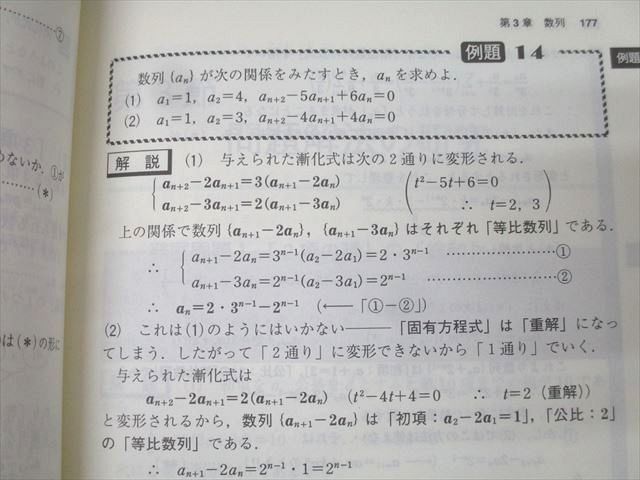 第3章 数列 177
例題 14
例題
数列 {aₙ} が次の関係をみたすとき，aₙ を求めよ．
(1) a₁=1, a₂=4, aₙ₊₂−5aₙ₊₁+6aₙ=0
(2) a₁=1, a₂=3, aₙ₊₂−4aₙ₊₁+4aₙ=0
解説 (1) 与えられた漸化式は次の2通りに変形される．
aₙ₊₂−2aₙ₊₁=3(aₙ₊₁−2aₙ) (t²−5t+6=0
aₙ₊₂−3aₙ₊₁=2(aₙ₊₁−3aₙ) ∴ t=2, 3)
上の関係で数列 {aₙ₊₁−2aₙ}, {aₙ₊₁−3aₙ} はそれぞれ「等比数列」である．
∴ { aₙ₊₁−2aₙ=3ⁿ⁻¹(a₂−2a₁)=2・3ⁿ⁻¹ ………………①
aₙ₊₁−3aₙ=2ⁿ⁻¹(a₂−3a₁)=2ⁿ⁻¹ ………………②
∴ aₙ=2・3ⁿ⁻¹−2ⁿ⁻¹ (←―「①−②」)
(2) これは(1)のようにはいかない――「固有方程式」は「重解」になっ
てしまう．したがって「2通り」に変形できないから「1通り」でいく．
与えられた漸化式は
aₙ₊₂−2aₙ₊₁=2(aₙ₊₁−2aₙ) (t²−4t+4=0 ∴ t=2 (重解))
と変形されるから，数列 {aₙ₊₁−2aₙ} は「初項：a₂−2a₁=1」，「公比：2」
の「等比数列」である．
∴ aₙ₊₁−2aₙ=2ⁿ⁻¹・1=2ⁿ⁻¹
②
ないか．①が
(＊)
は(＊)の形に